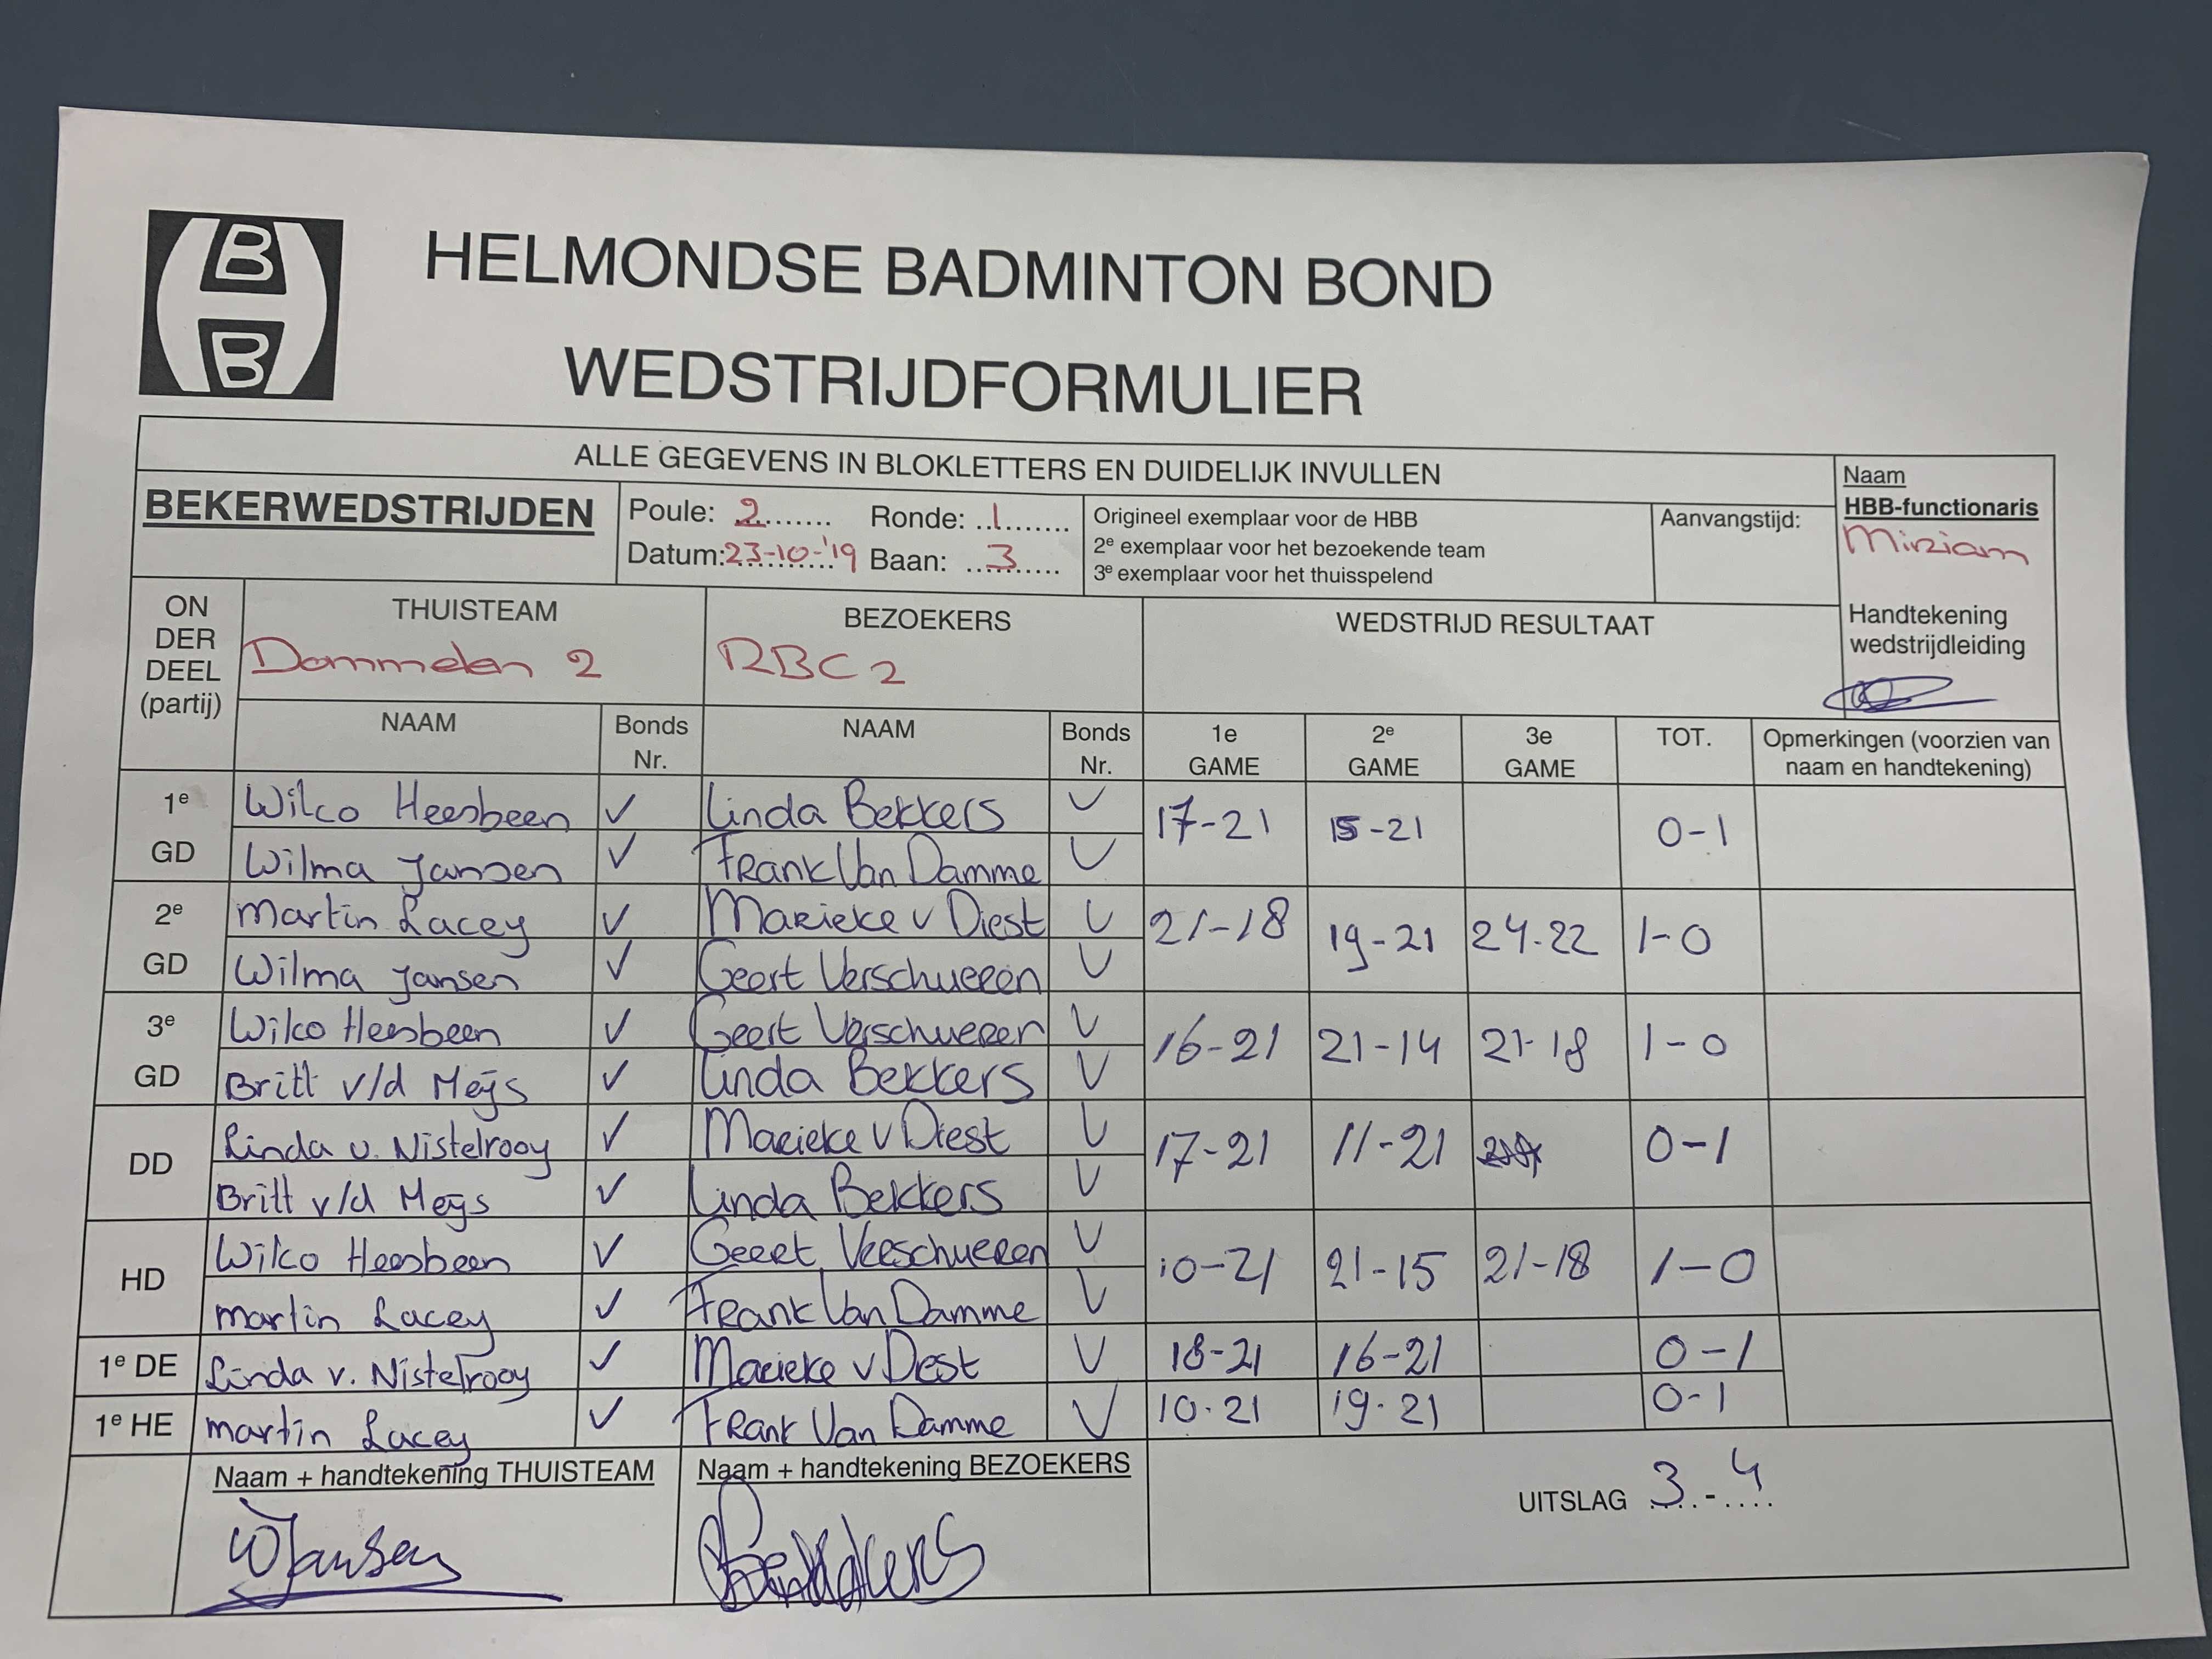 B
B
HELMONDSE BADMINTON BOND
WEDSTRIJDFORMULIER
ALLE GEGEVENS IN BLOKLETTERS EN DUIDELIJK INVULLEN
Naam
HBB-functionaris
Miriam
Handtekening
wedstrijdleiding
BEKERWEDSTRIJDEN
Poule: 2 Ronde: 1
Datum: 23-10-'19 Baan: 3
Origineel exemplaar voor de HBB
2e exemplaar voor het bezoekende team
3e exemplaar voor het thuisspelend
Aanvangstijd:
ON
DER
DEEL
(partij)
THUISTEAM
Dommelen 2
BEZOEKERS
RBC 2
WEDSTRIJD RESULTAAT
NAAM Bonds Nr. NAAM Bonds Nr. 1e GAME 2e GAME 3e GAME TOT. Opmerkingen (voorzien van
naam en handtekening)
1e GD
Wilco Heesbeen ✓ Linda Bekkers ✓ 17-21 15-21 0-1
Wilma Jansen ✓ Frank Van Damme ✓
2e GD
Martin Lacey ✓ Marieke v Diest ✓ 21-18 19-21 24-22 1-0
Wilma Jansen ✓ Geert Verschueren ✓
3e GD
Wilco Heesbeen ✓ Geert Verschueren ✓ 16-21 21-14 21-18 1-0
Britt v/d Meijs ✓ Linda Bekkers ✓
DD
Linda v. Nistelrooy ✓ Marieke v Diest ✓ 17-21 11-21 0-1
Britt v/d Meijs ✓ Linda Bekkers ✓
HD
Wilco Heesbeen ✓ Geert Verschueren ✓ 10-21 21-15 21-18 1-0
Martin Lacey ✓ Frank Van Damme ✓
1e DE Linda v. Nistelrooy ✓ Marieke v Dest ✓ 18-21 16-21 0-1
1e HE Martin Lacey ✓ Frank Van Damme ✓ 10-21 19-21 0-1
Naam + handtekening THUISTEAM
WJansen
Naam + handtekening BEZOEKERS
Bekkers
UITSLAG 3 - 4